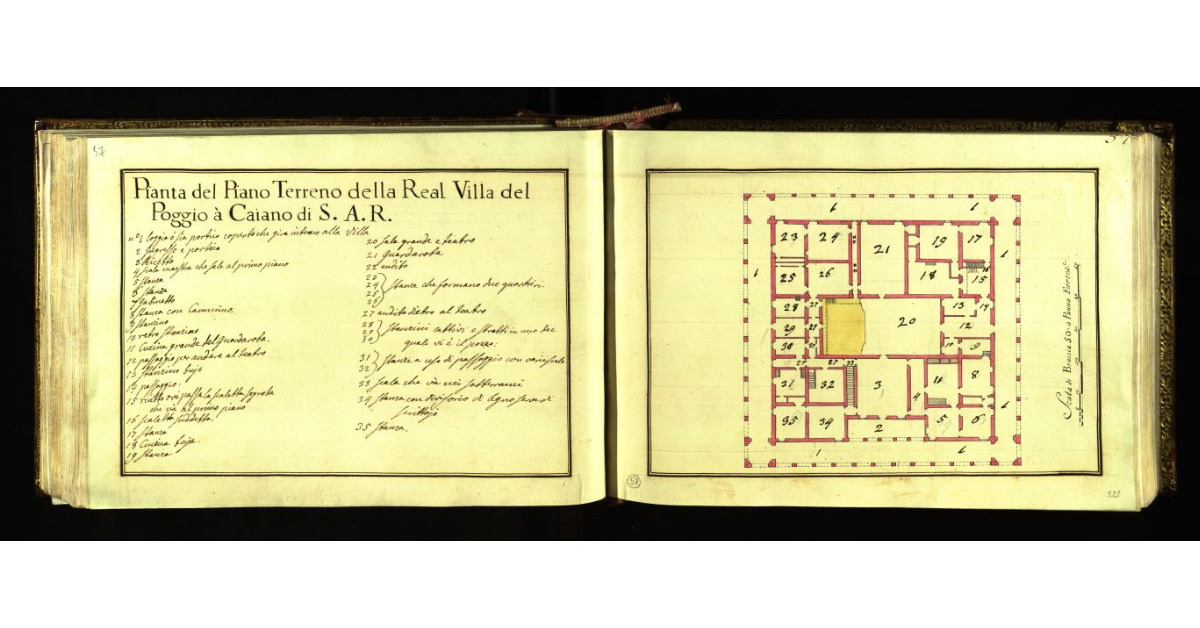 57
Pianta del Piano Terreno della Real Villa del
Poggio à Caiano di S. A. R.
n.º 1 loggia ò sia portico coperto che gira intorno alla Villa
2 Ingresso e portico
3 Ricetto
4 scala maestra che sale al primo piano
5 stanza
6 stanza
7 Gabinetto
8 stanza con Cammino.
9 stanzino
10 retro stanzino
11 Cucina grande del Guardaroba.
12 passaggio per andare al teatro
13 stanzino bujo
14 passaggio.
15 ricetto ov'è passa la scaletta segreta
che va al primo piano
16 scaletta suddetta.
17 stanza
18 Cucina buja.
19 stanza
20 sala grande e teatro
21 Guardaroba
22 andito
23
24 stanze che formano due quartieri
25
26
27 andito dietro al teatro
28
29 stanzini cattivi e stretti in uno dei
30 quali vi è il pozzo:
31 stanze a uso di passaggio con
32
33 scala che và nei sotterranei
34 stanza con divisorio di legno serve di
scrittojo
35 stanza.
1 1
23 24 21 19 17
1 1
25 26 18 16 15
28 27 20 13 14
29 27 12
30 27 10 9
27 27 33
31 32 3 11 8
4 1
35 34 2 5 6
1 1
Scala di Braccia 50 a Panno Fiorent.e
58
121